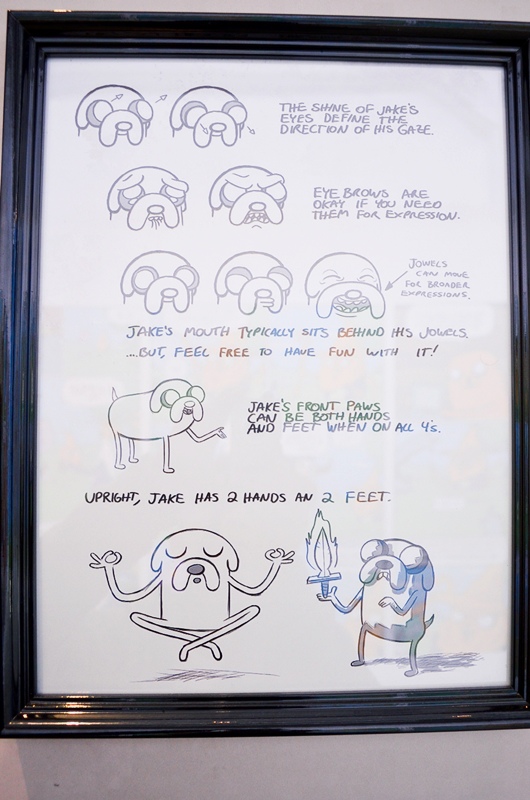 THE SHINE OF JAKE'S
EYES DEFINE THE
DIRECTION OF HIS GAZE.
EYE BROWS ARE
OKAY IF YOU NEED
THEM FOR EXPRESSION.
JOWELS
CAN MOVE
FOR BROADER
EXPRESSIONS.
JAKE'S MOUTH TYPICALLY SITS BEHIND HIS JOWELS.
...BUT, FEEL FREE TO HAVE FUN WITH IT!
JAKE'S FRONT PAWS
CAN BE BOTH HANDS
AND FEET WHEN ON ALL 4'S.
UPRIGHT, JAKE HAS 2 HANDS AN 2 FEET.